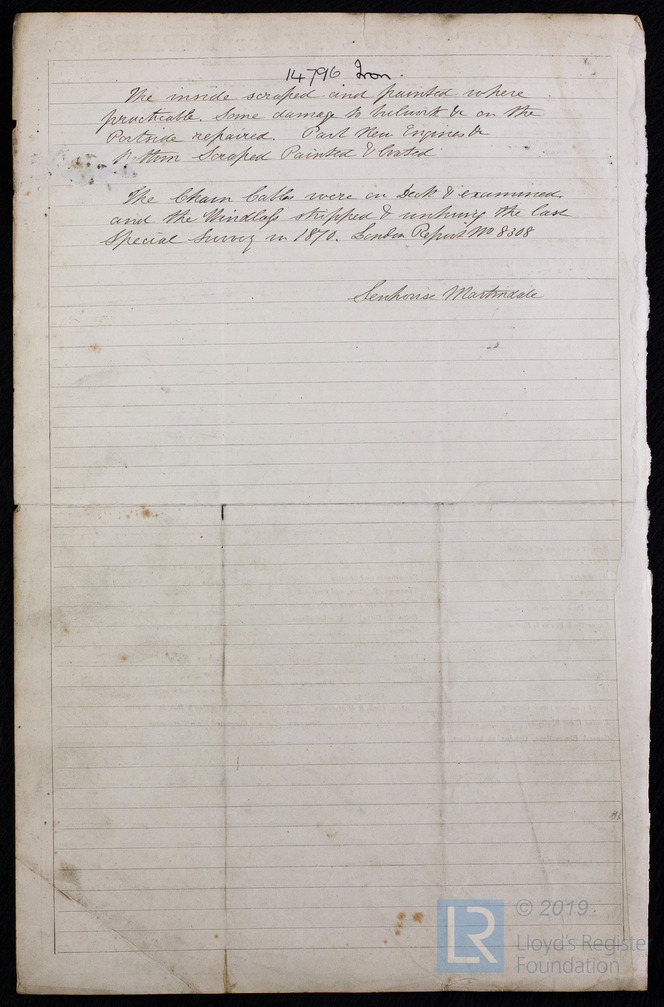 14796 Iron.
The inside scraped and painted where
practicable. Some damage to bulwark &c on the
Portside repaired. Part New Engines &c
Bottom Scraped Painted & Coated
The Chain Cables were on Deck & examined
and the Windlass stripped & unhung the last
Special Survey in 1870. London Report No 8308
Senhouse Martindale
© 2019
LR
Lloyd's Register
Foundation